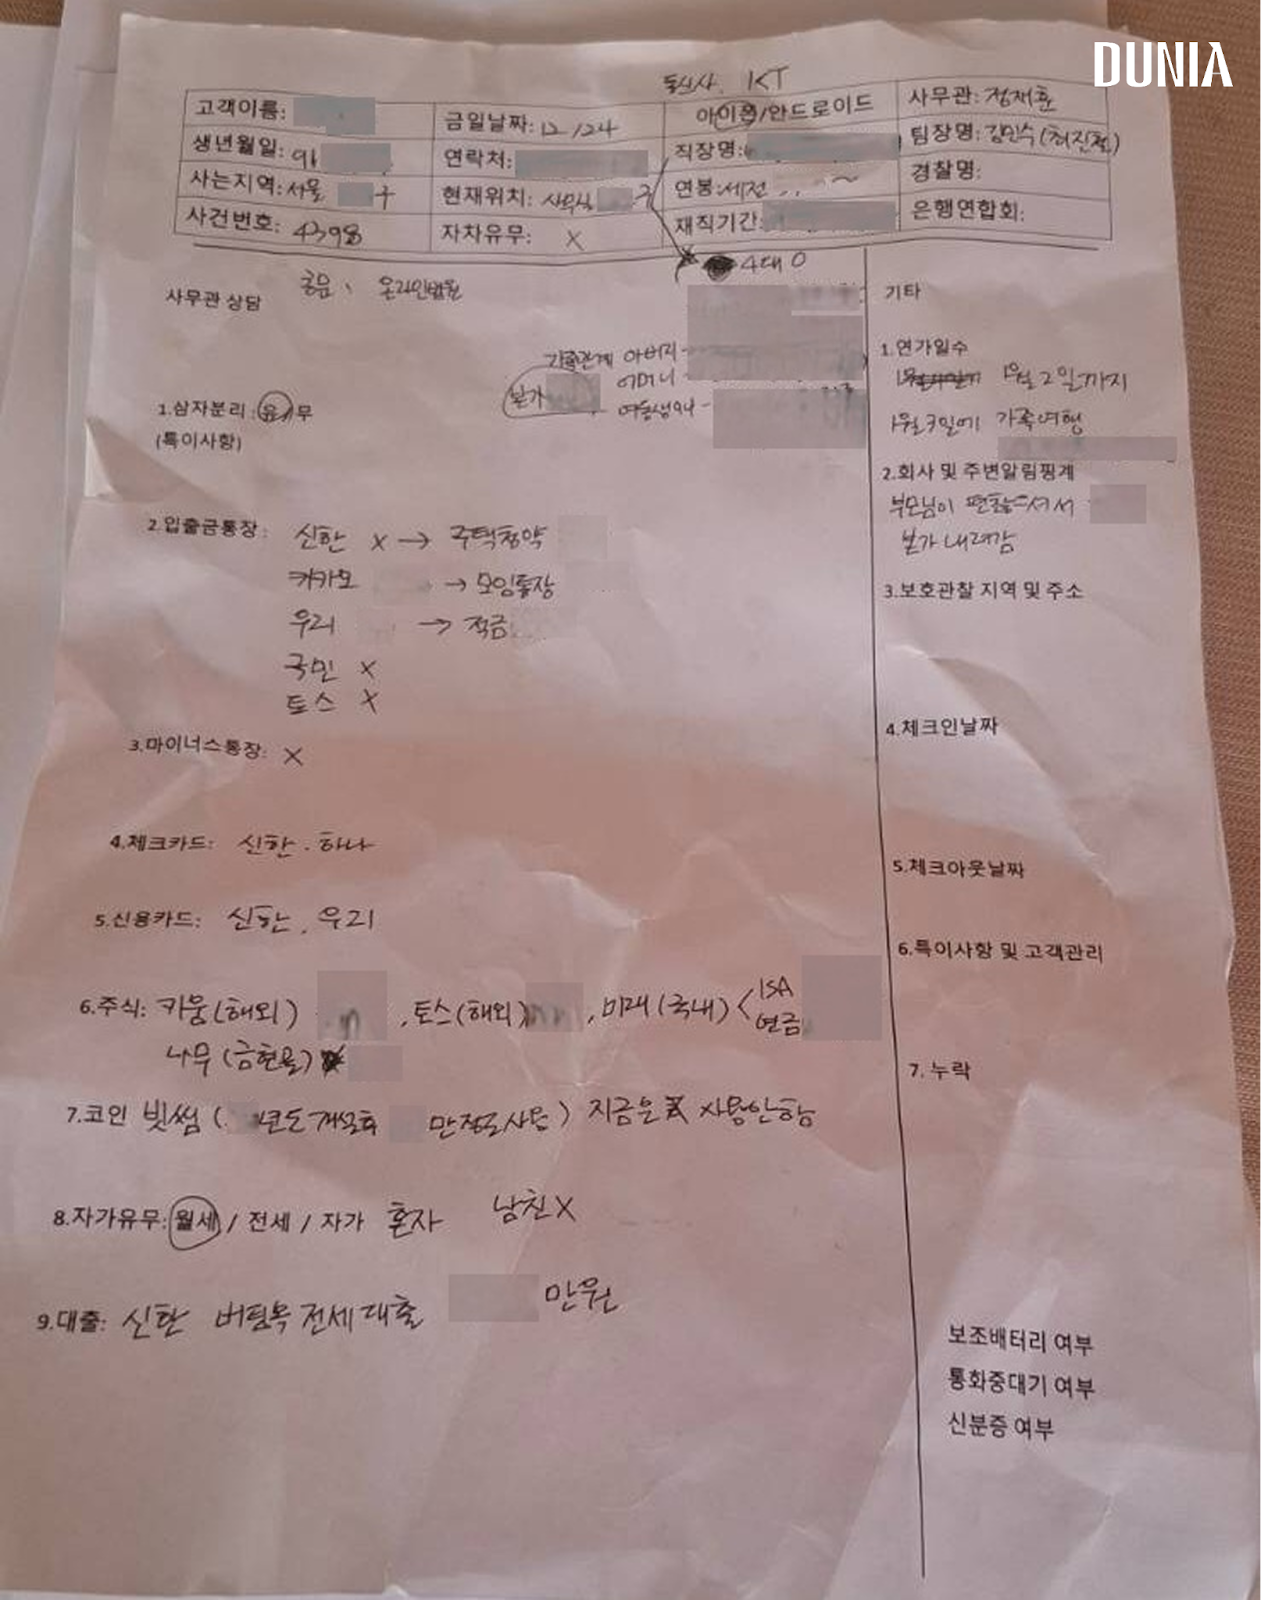 DUNIA
통신사. KT
고객이름: 금일날짜: 12/24 아이폰/안드로이드 사무관: 정재훈
생년월일: 91 연락처: 직장명: 팀장명: 김민수(최진철)
사는지역: 서울 구 현재위치: 사무실 구 연봉: 세전 ~ 경찰명:
사건번호: 4398 자차유무: X 재직기간: 은행연합회:
4대 O
사무관 상담 공문, 온라인법원
가족관계 아버지-
본가 어머니-
여동생 -
1.삼자분리: 유/무
(특이사항)
2.입출금통장: 신한 X → 주택청약
카카오 → 모임통장
우리 → 적금
국민 X
토스 X
3.마이너스통장: X
4.체크카드: 신한. 하나
5.신용카드: 신한, 우리
6.주식: 키움(해외) , 토스(해외) , 미래(국내) < ISA
연금
나무(금현물)
7.코인 빗썸 ( 년도 개설후 만정도사용) 지금은 사용안함
8.자가유무: 월세 / 전세 / 자가 혼자 남친X
9.대출: 신한 버팀목 전세대출 만원
기타
1.연가일수
1월2일까지
1월3일에 가족여행
2.회사 및 주변알림핑계
부모님이 편찮으셔서
본가 내려감
3.보호관찰 지역 및 주소
4.체크인날짜
5.체크아웃날짜
6.특이사항 및 고객관리
7. 누락
보조배터리 여부
통화중대기 여부
신분증 여부